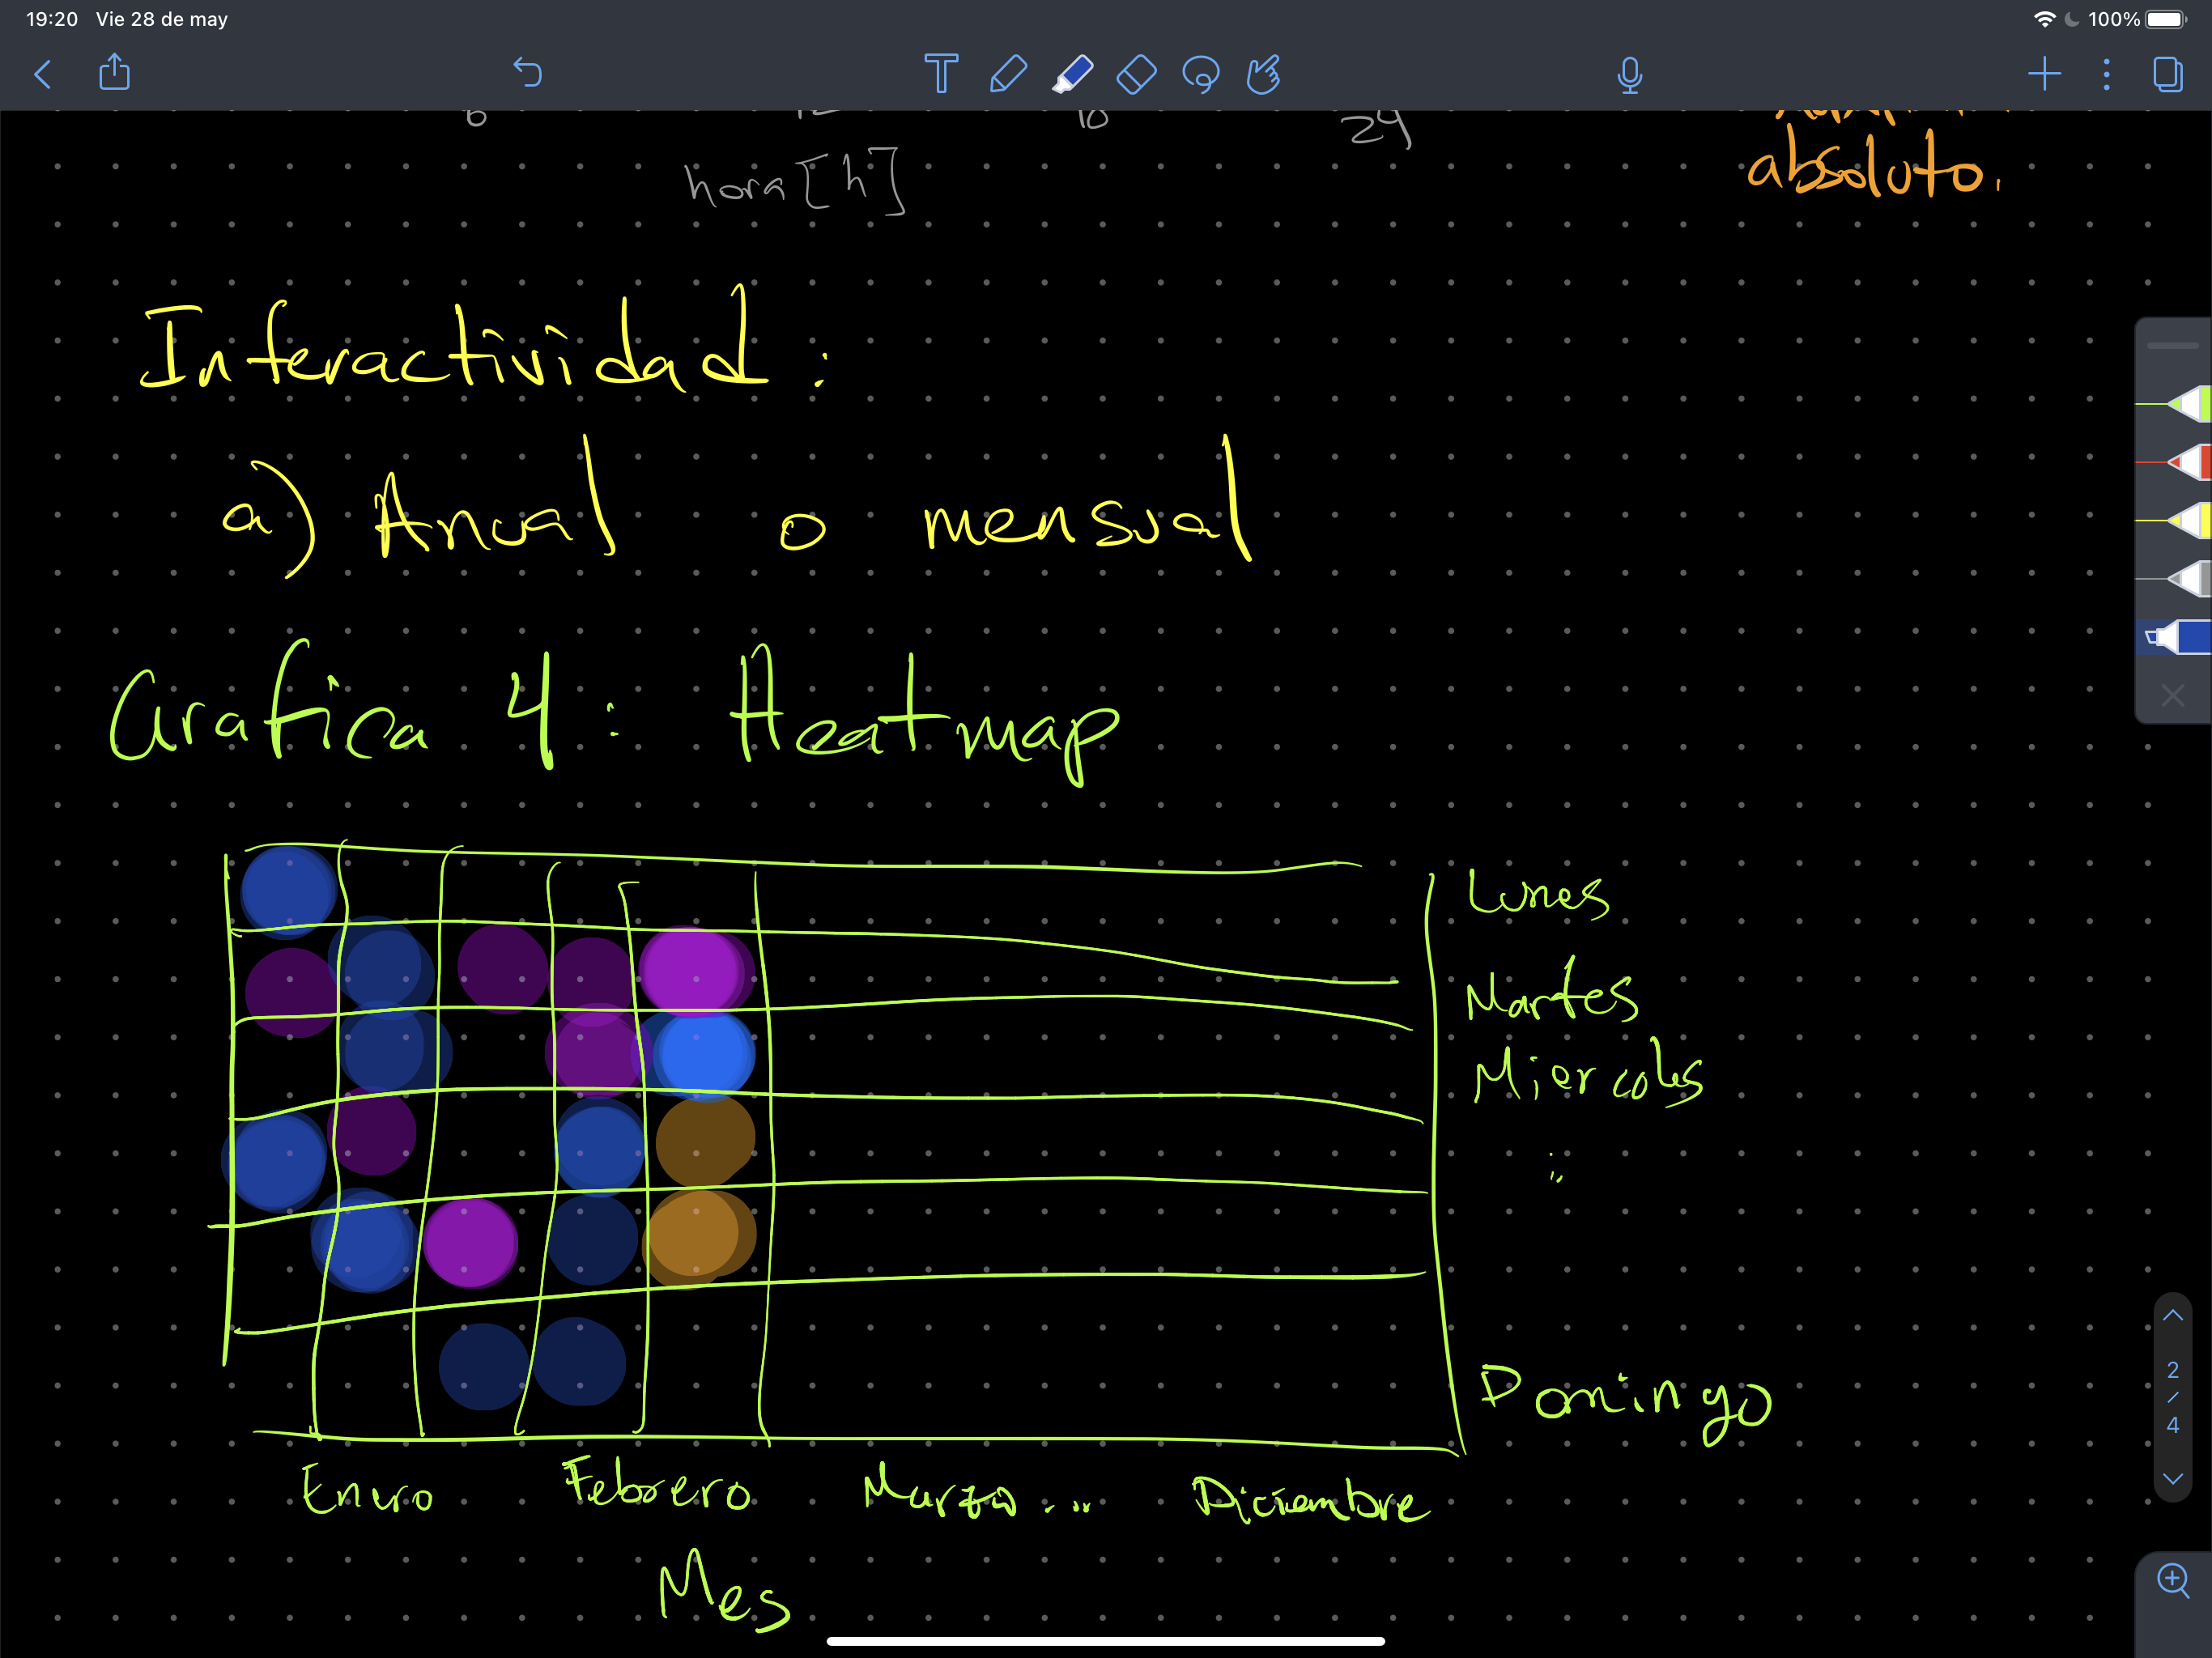 19:20 Vie 28 de may 100%
6 12 18 24
hora [h]
absoluto.
Interactividad:
a) Anual o mensual
Grafica 4: Heatmap
Lunes
Martes
Miercoles
Domingo
Enero Febrero Marzo... Diciembre
Mes
2
/
4